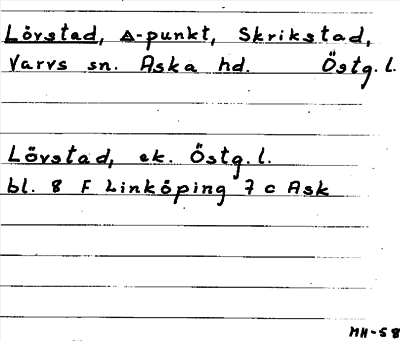 Lövstad, △-punkt, Skrikstad,
Varvs sn. Aska hd. Östg. l.
Lövstad, ek. Östg. l.
bl. 8 F Linköping 7 c Ask
MH-58